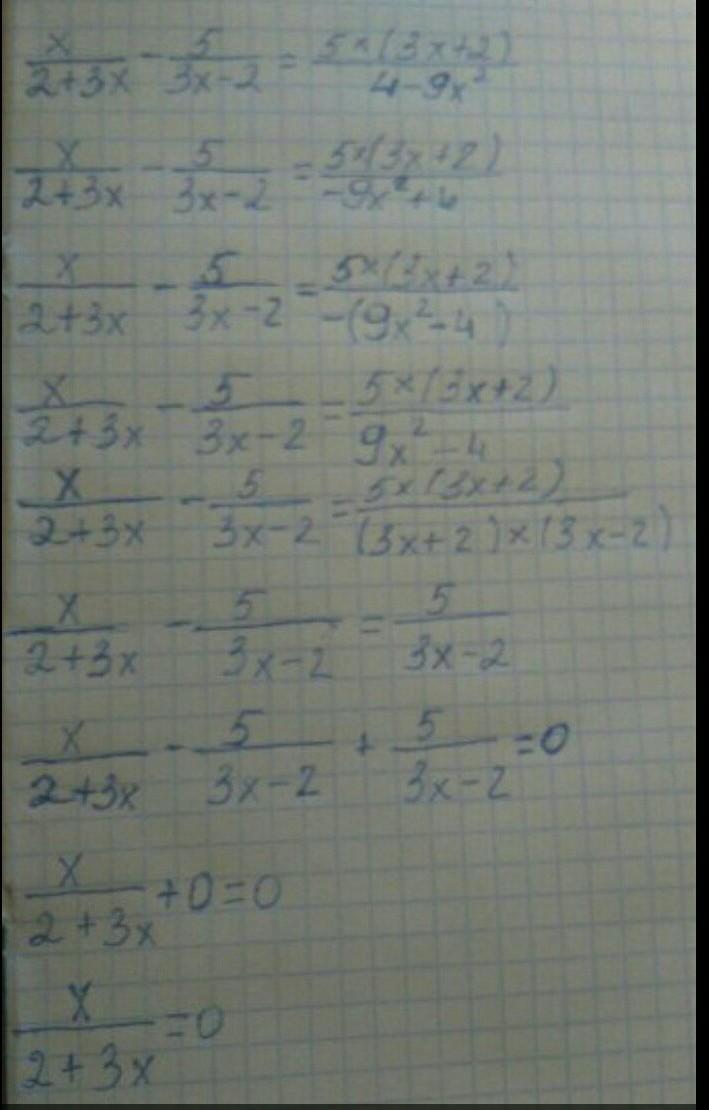 x/(2+3x) - 5/(3x-2) = 5×(3x+2)/(4-9x²)
x/(2+3x) - 5/(3x-2) = 5×(3x+2)/(-9x²+4)
x/(2+3x) - 5/(3x-2) = 5×(3x+2)/(-(9x²-4))
x/(2+3x) - 5/(3x-2) = 5×(3x+2)/(9x²-4)
x/(2+3x) - 5/(3x-2) = 5×(3x+2)/((3x+2)×(3x-2))
x/(2+3x) - 5/(3x-2) = 5/(3x-2)
x/(2+3x) - 5/(3x-2) + 5/(3x-2) = 0
x/(2+3x) + 0 = 0
x/(2+3x) = 0